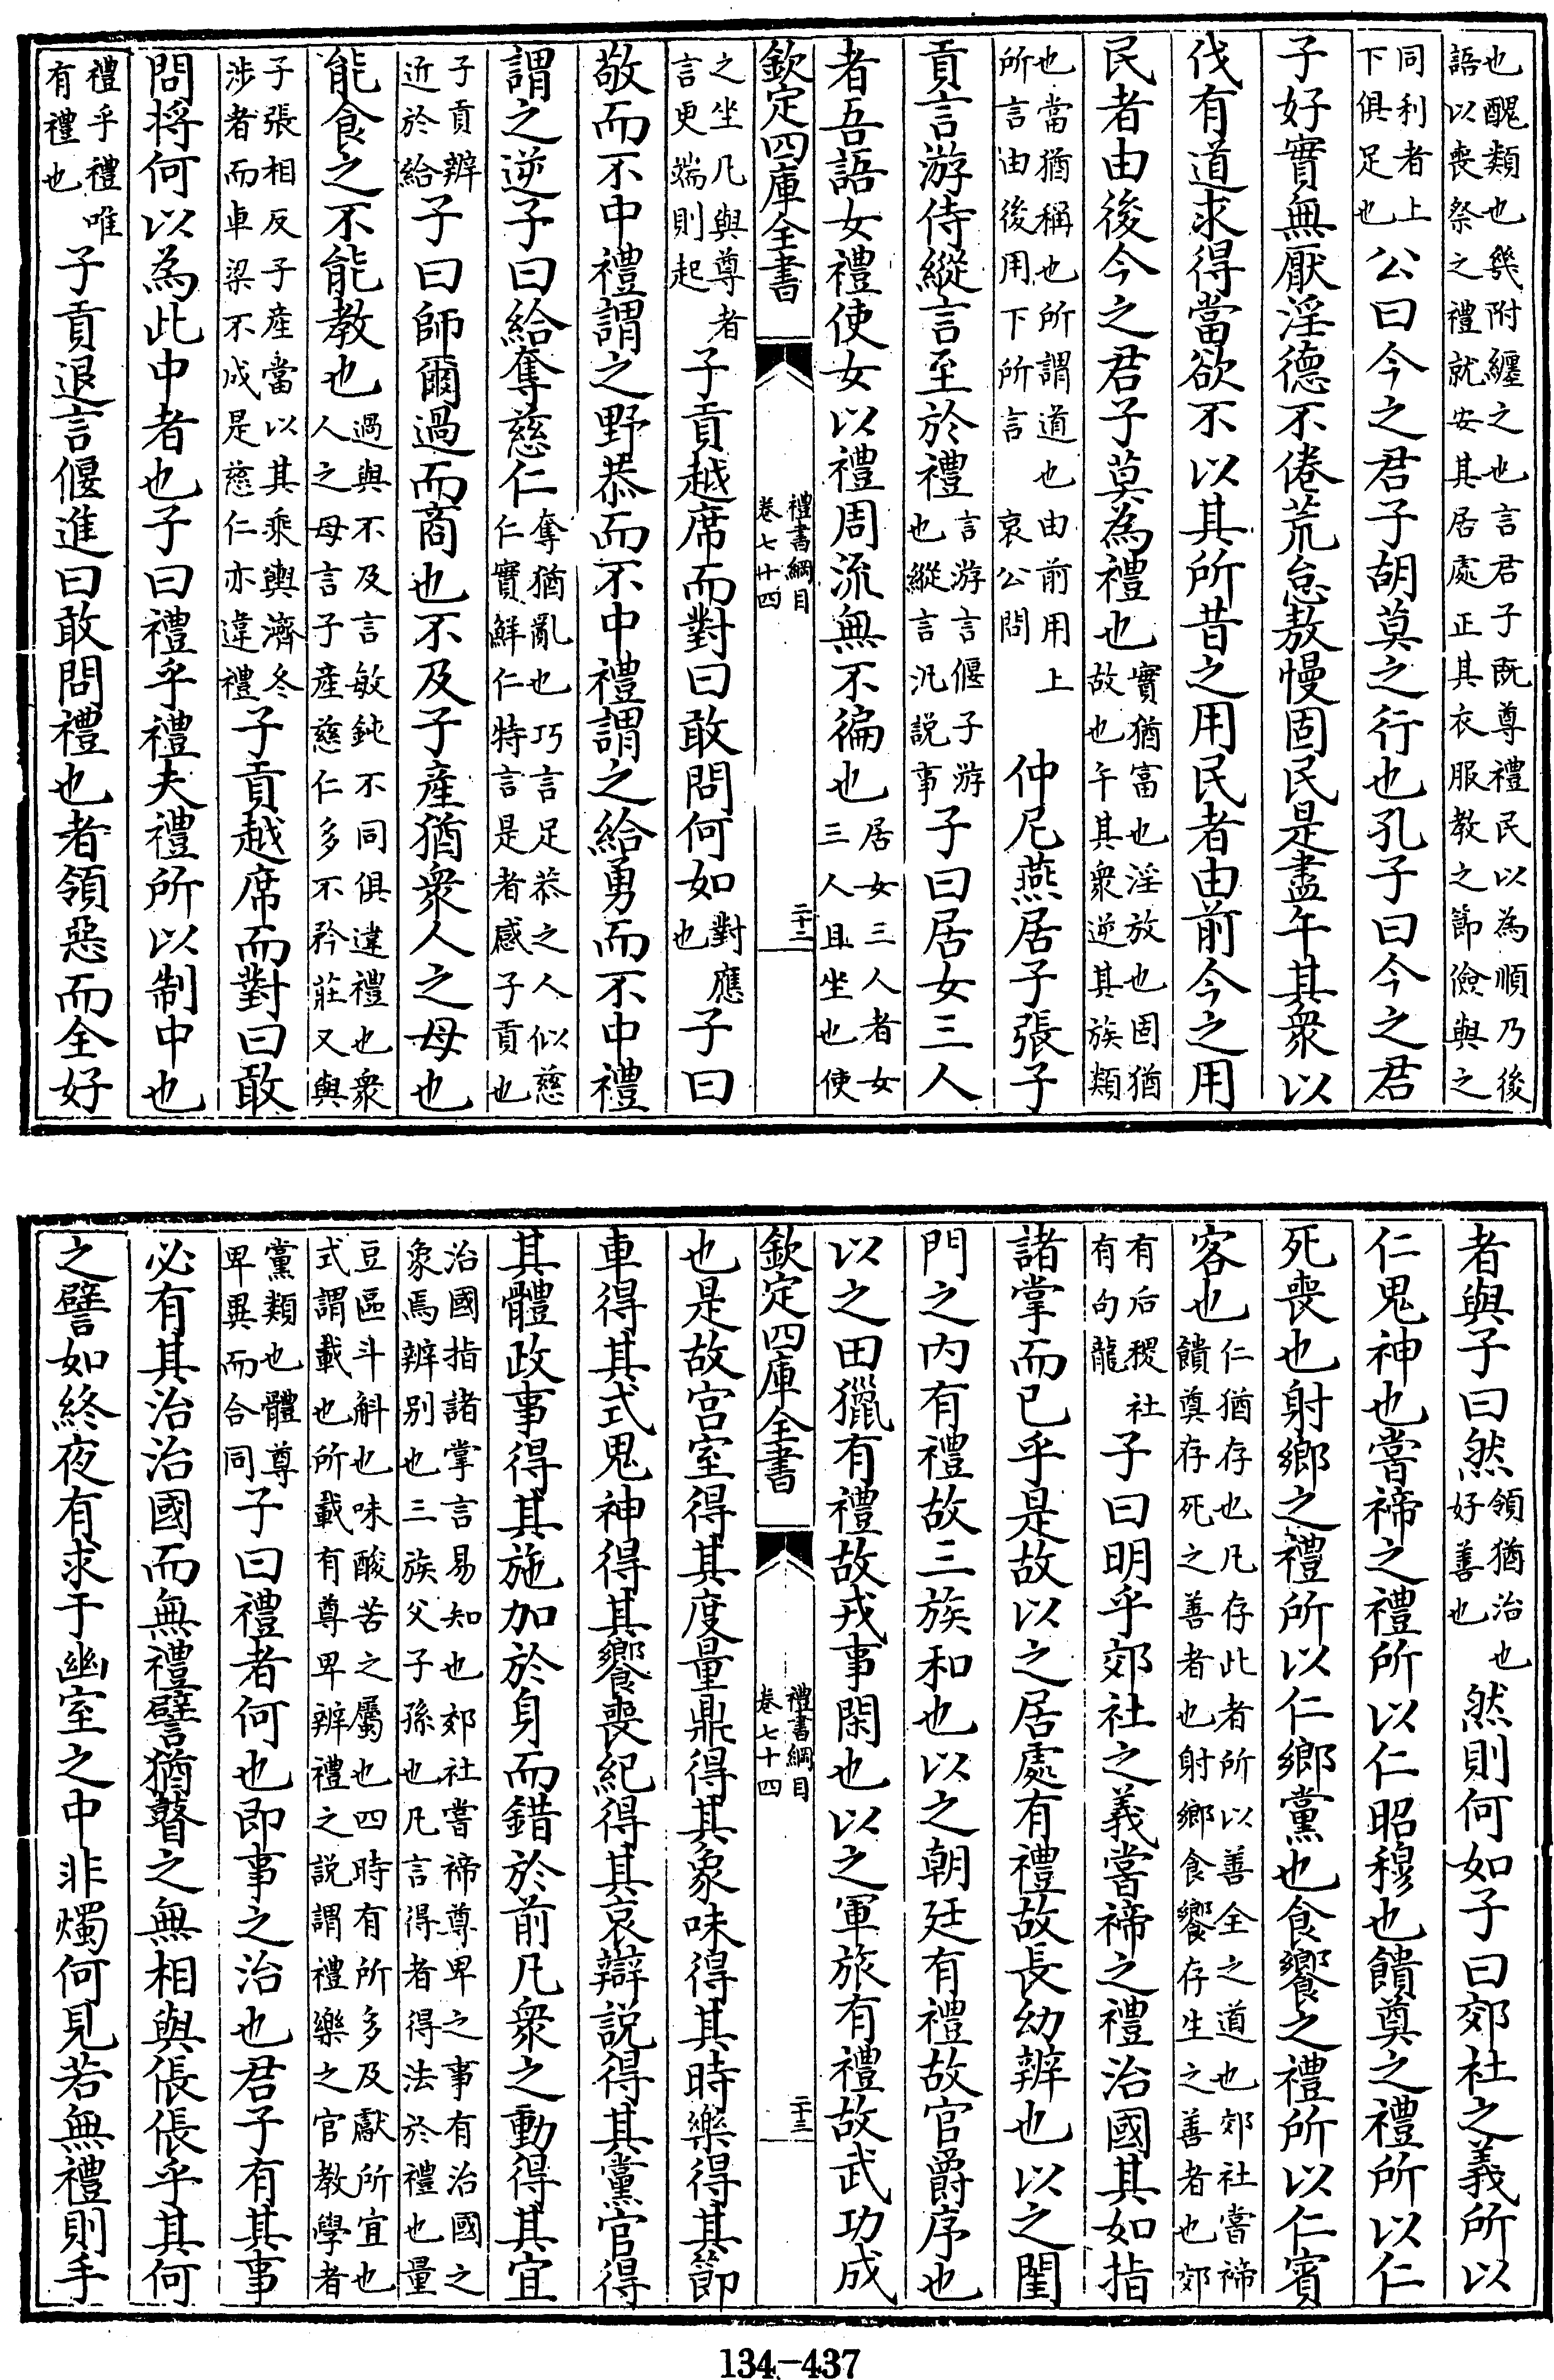 也醜類也幾附纏之也言君子既尊禮民以為順乃後
語以喪祭之禮就安其居處正其衣服教之節儉與之
同利者上
下俱足也
公曰今之君子胡莫之行也孔子曰今之君
子好實無厭淫德不倦荒怠敖慢固民是盡午其衆以
伐有道求得當欲不以其所昔之用民者由前今之用
民者由後今之君子莫為禮也
實猶富也淫放也固猶
故也午其衆逆其族類
也當猶稱也所謂道也由前用上
所言由後用下所言　哀公問
仲尼燕居子張子
貢言游侍縱言至於禮
言游言偃子游
也縱言汎説事
子曰居女三人
者吾語女禮使女以禮周流無不徧也
居女三人者女
三人且坐也使
欽定四庫全書
禮書綱目
卷七十四
二十二
之坐凡與尊者
言更端則起
子貢越席而對曰敢問何如
對應
也
子曰
敬而不中禮謂之野恭而不中禮謂之給勇而不中禮
謂之逆子曰給奪慈仁
奪猶亂也巧言足恭之人似慈
仁實鮮仁特言是者感子貢也
子貢辨
近於給
子曰師爾過而商也不及子產猶衆人之母也
能食之不能教也
過與不及言敏鈍不同俱違禮也衆
人之母言子產慈仁多不矜莊又與
子張相反子產當以其乘輿濟冬
涉者而車梁不成是慈仁亦違禮
子貢越席而對曰敢
問將何以為此中者也子曰禮乎禮夫禮所以制中也
禮乎禮唯
有禮也
子貢退言偃進曰敢問禮也者領惡而全好
者與子曰然
領猶治也
好善也
然則何如子曰郊社之義所以
仁鬼神也嘗禘之禮所以仁昭穆也饋奠之禮所以仁
死喪也射鄉之禮所以仁鄉黨也食饗之禮所以仁賓
客也
仁猶存也凡存此者所以善全之道也郊社嘗禘
饋奠存死之善者也射鄉食饗存生之善者也郊
有后稷社
有句龍
子曰明乎郊社之義嘗禘之禮治國其如指
諸掌而已乎是故以之居處有禮故長幼辨也以之閨
門之内有禮故三族和也以之朝廷有禮故官爵序也
以之田獵有禮故戎事閑也以之軍旅有禮故武功成
欽定四庫全書
禮書綱目
卷七十四
二十三
也是故宫室得其度量鼎得其象味得其時樂得其節
車得其式鬼神得其饗喪紀得其哀辯説得其黨官得
其體政事得其施加於身而錯於前凡衆之動得其宜
治國指諸掌言易知也郊社嘗禘尊卑之事有治國之
象焉辨别也三族父子孫也凡言得者得法於禮也量
豆區斗斛也味酸苦之屬也四時有所多及獻所宜也
式謂載也所載有尊卑辨禮之説謂禮樂之官教學者
黨類也體尊
卑異而合同
子曰禮者何也即事之治也君子有其事
必有其治治國而無禮譬猶瞽之無相與倀倀乎其何
之譬如終夜有求于幽室之中非燭何見若無禮則手
134-437